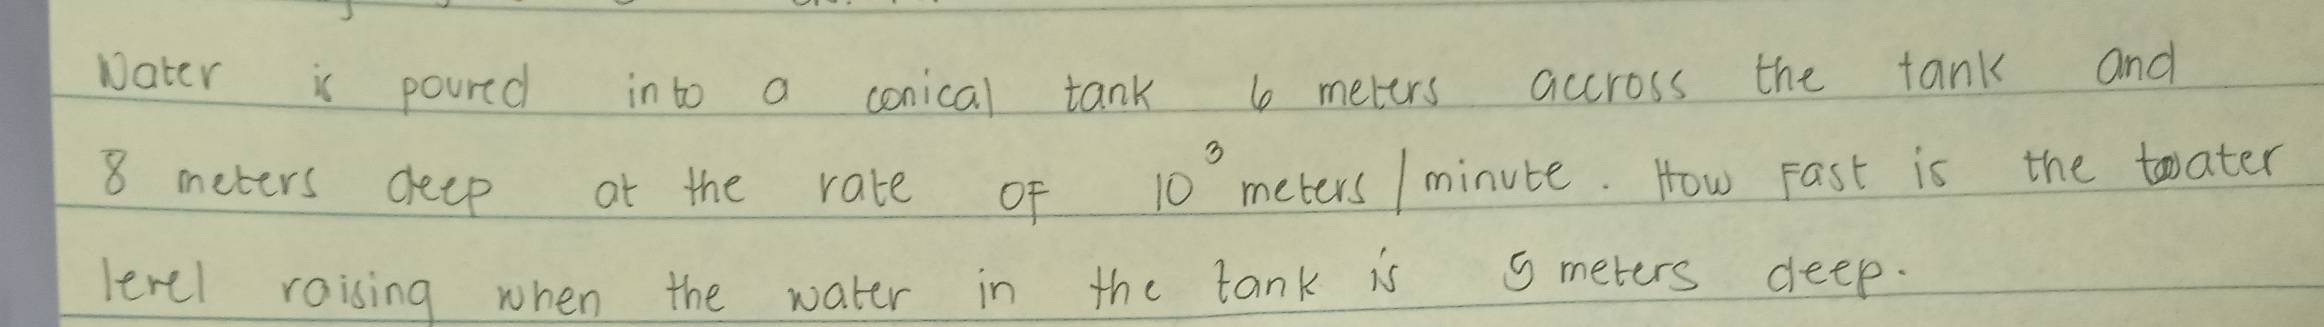 Water is poured into a conical tank 6 meters accross the tank and
8 meters deep at the rate of 10³ meters / minute. How Fast is the water
level raising when the water in the tank is 5 meters deep.